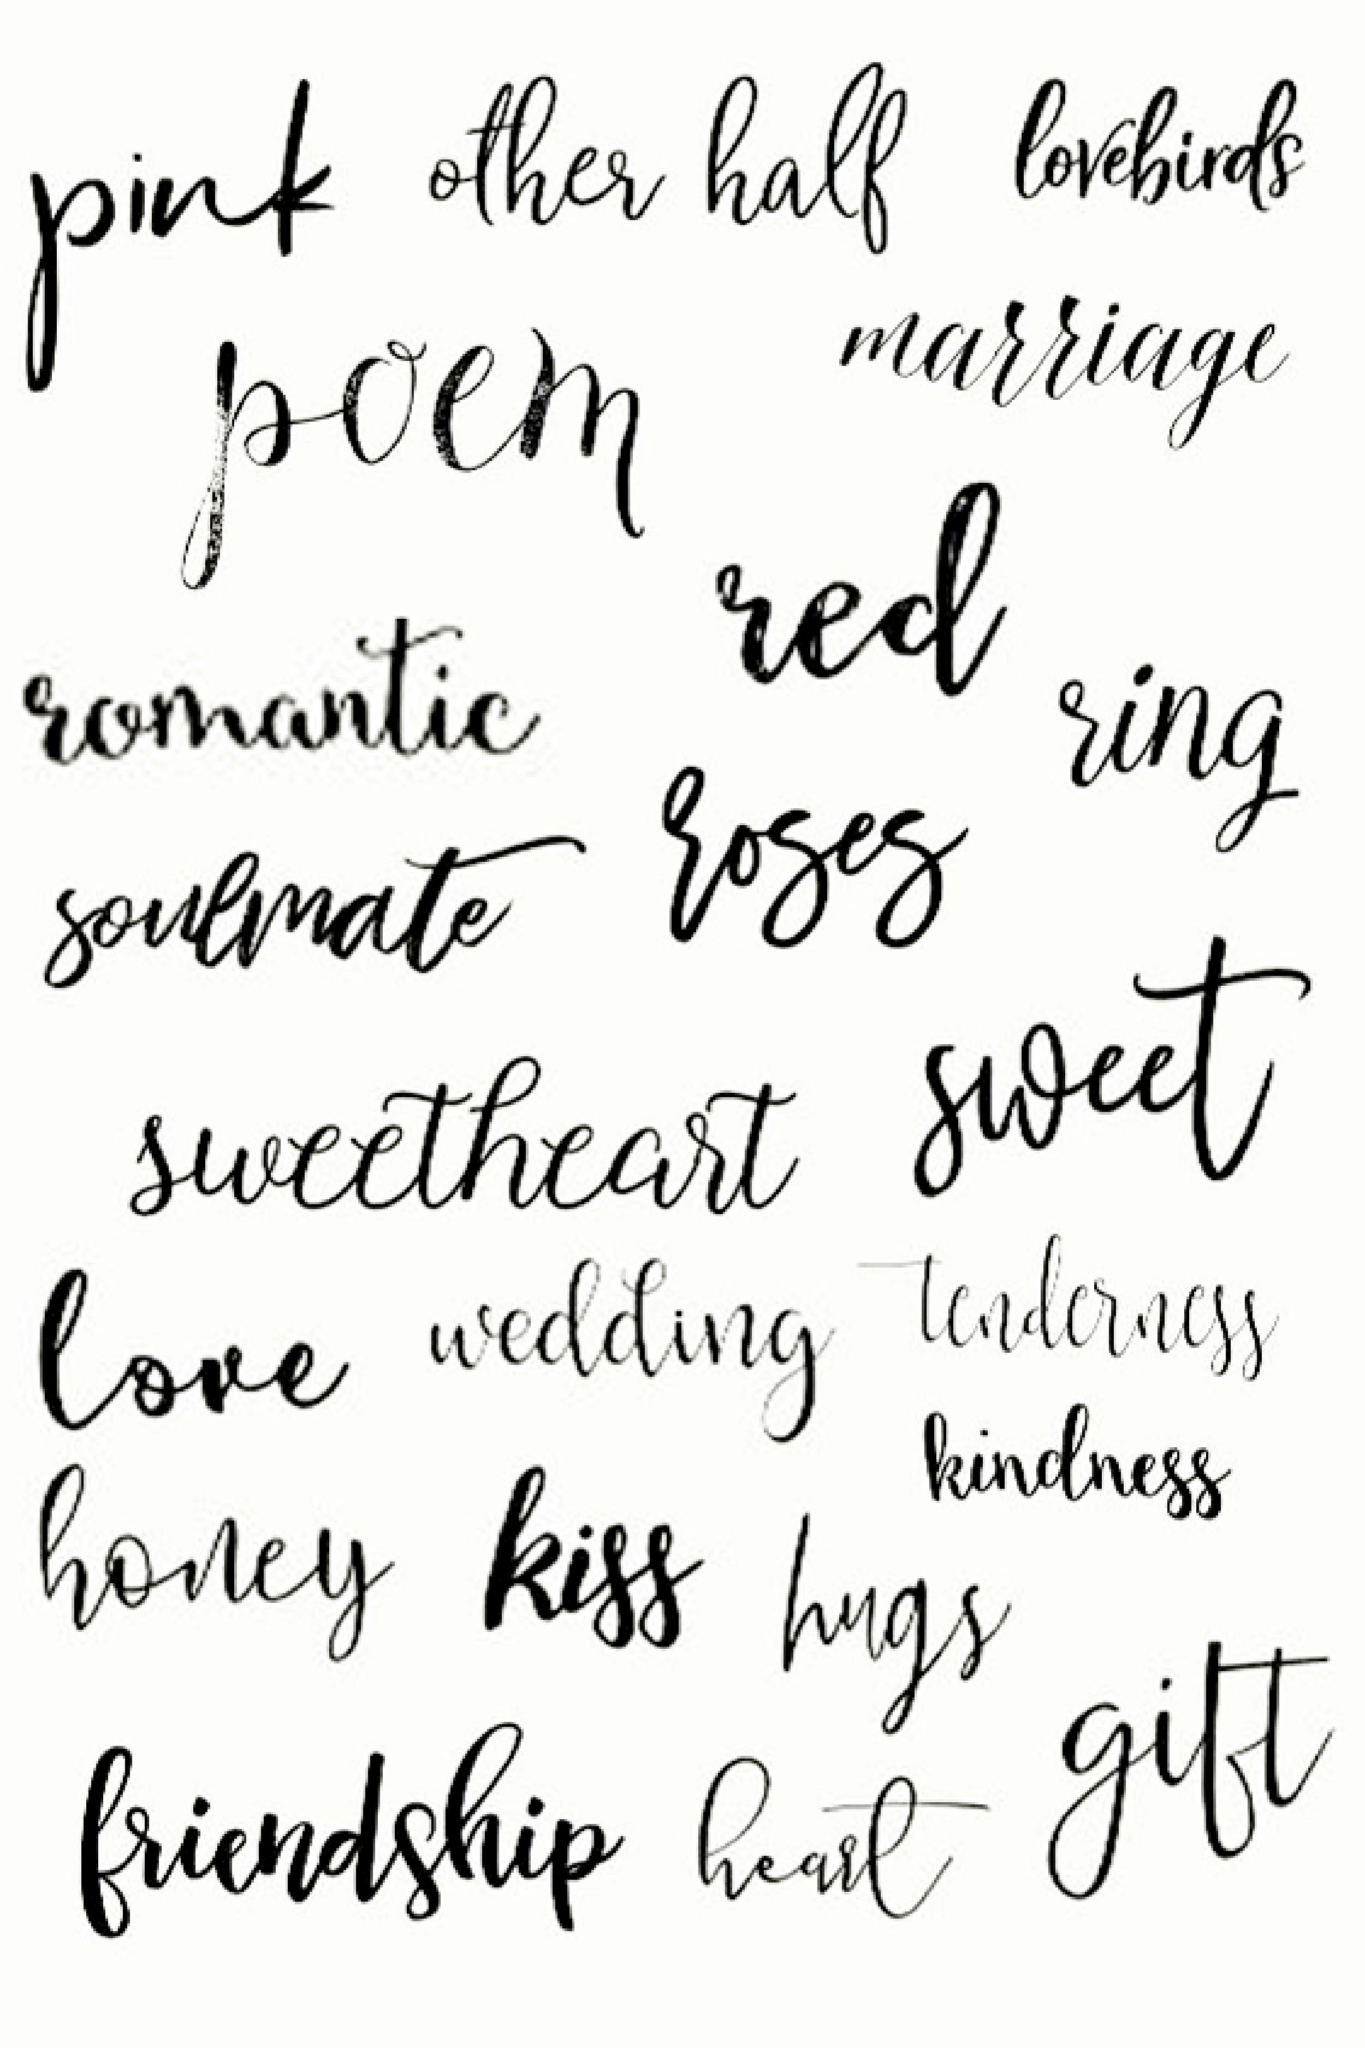 pink other half lovebirds
marriage
poem
red
romantic ring
roses
soulmate
sweet
sweetheart
love wedding tenderness
kindness
honey kiss hugs
gift
friendship heart